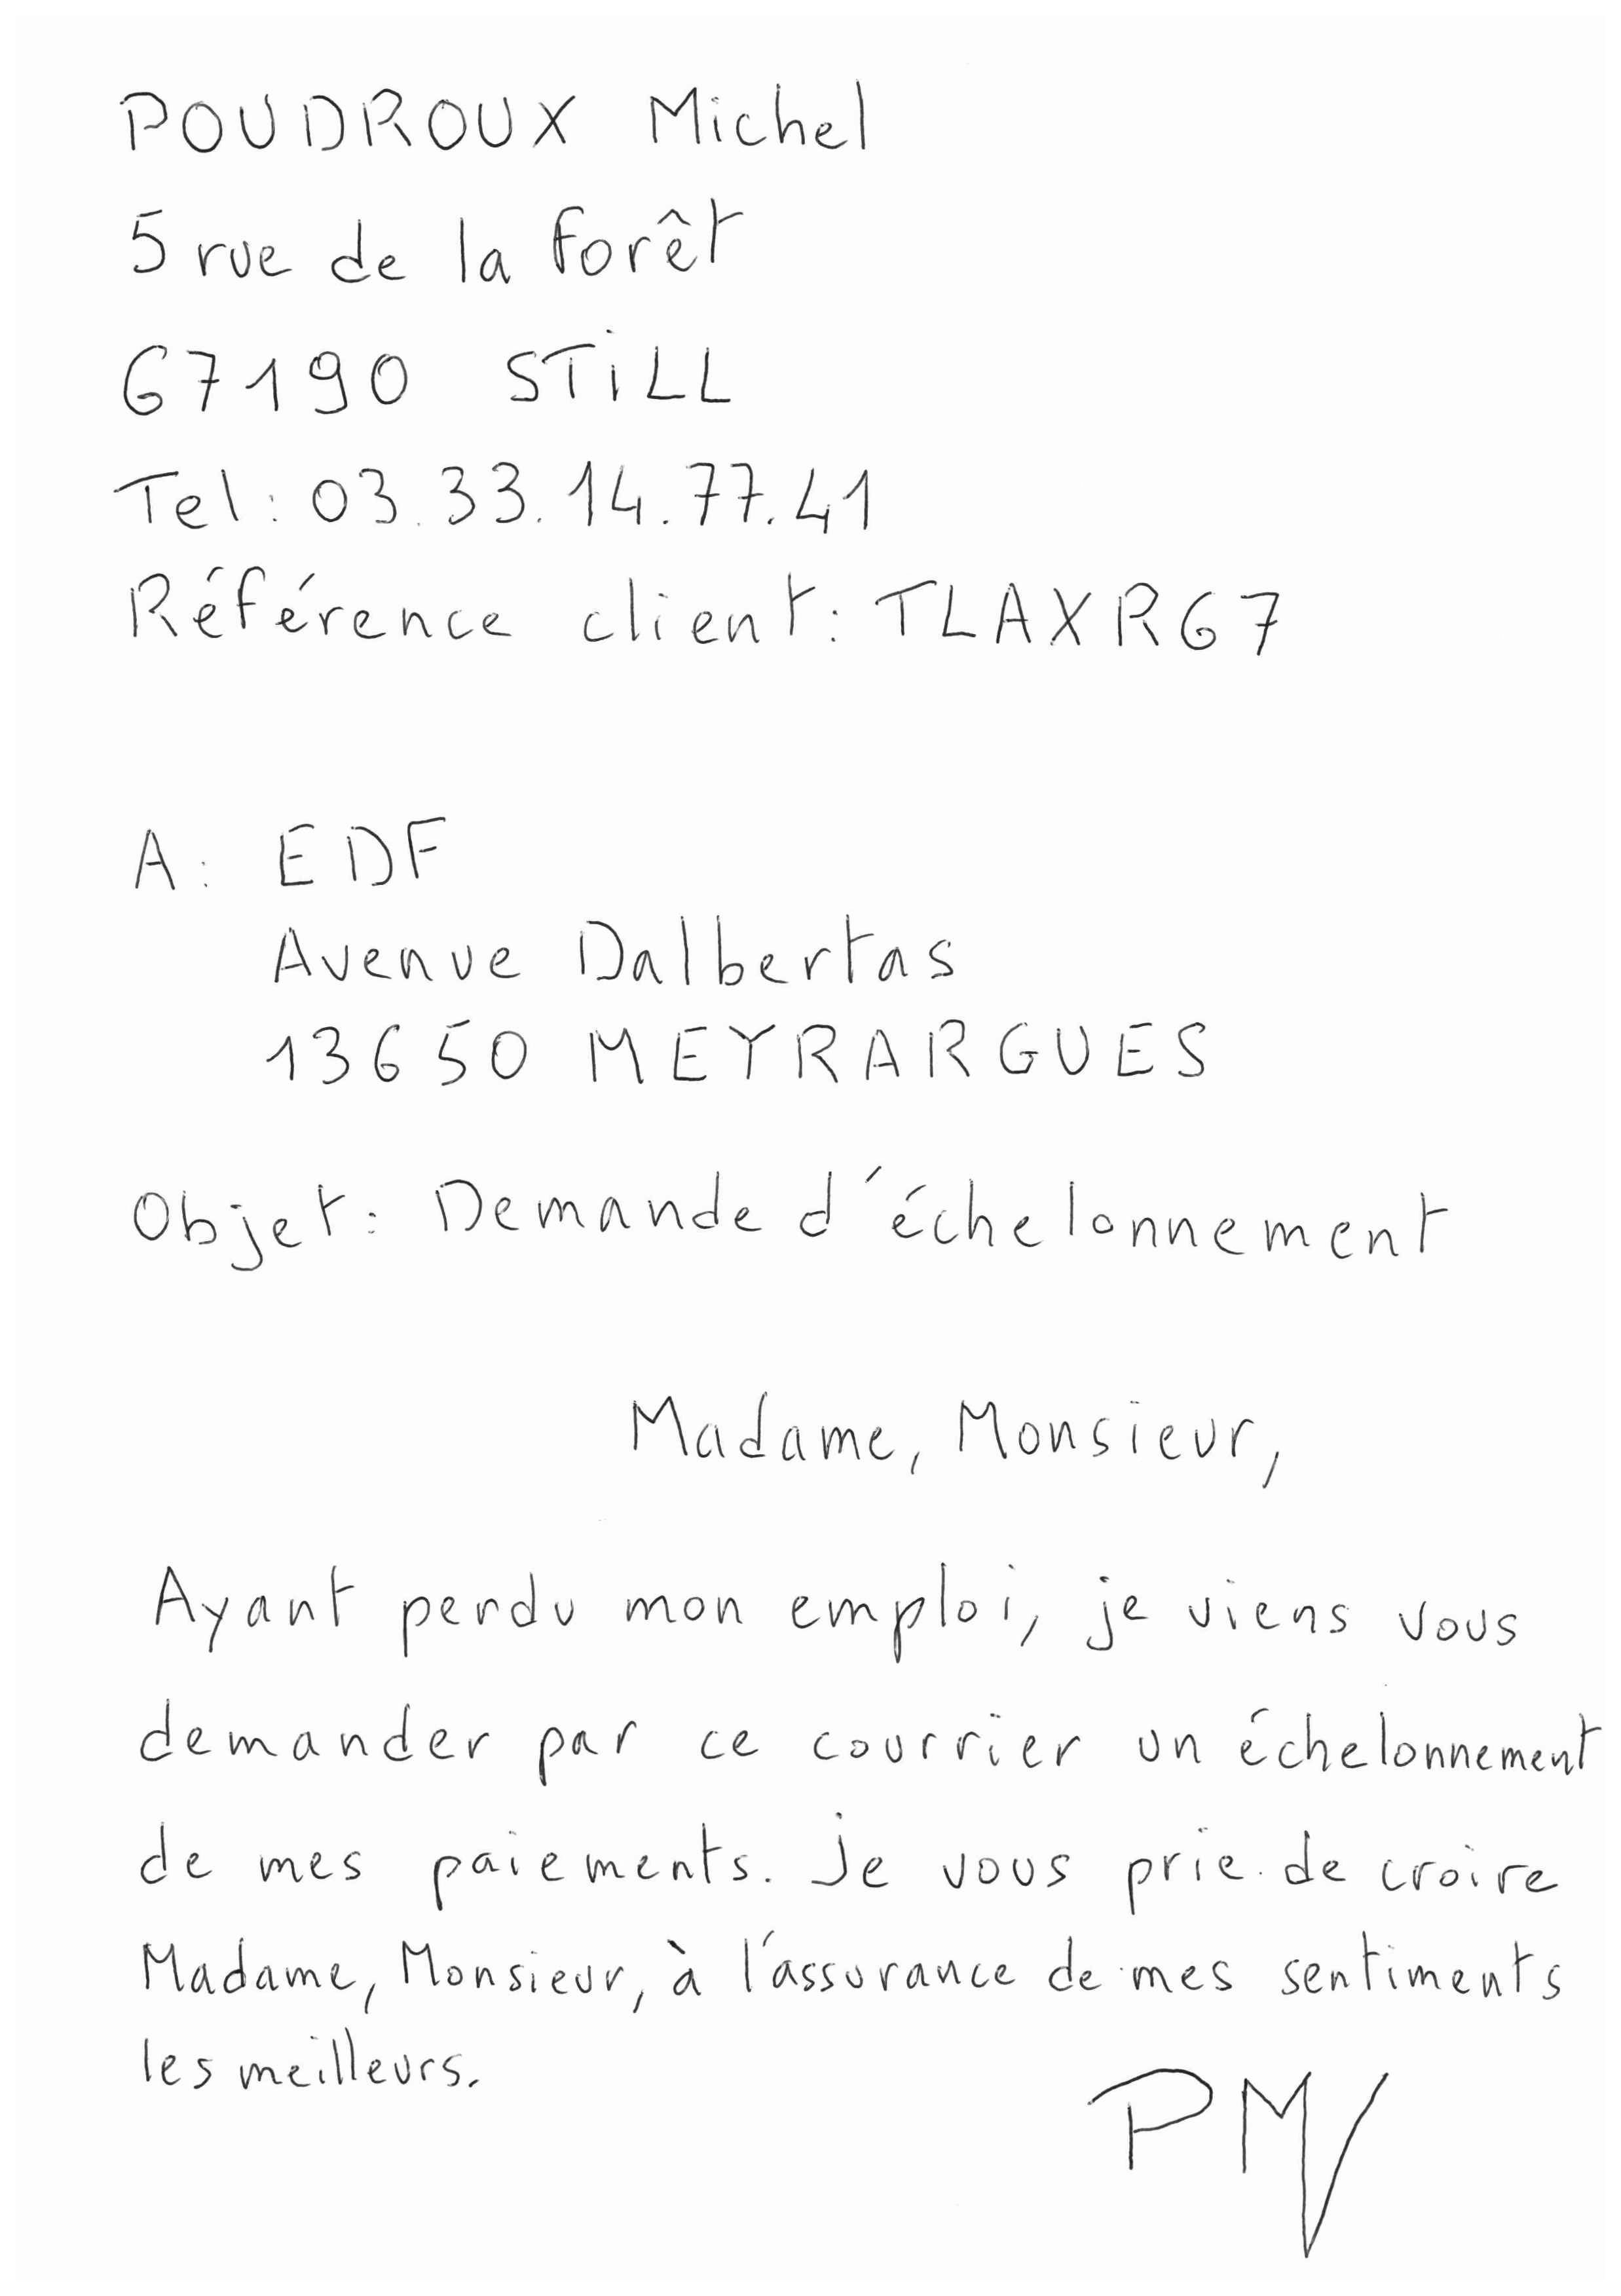 POUDROUX Michel
5 rue de la forêt
67190 STiLL
Tel: 03.33.14.77.41
Référence client: TLAXR67
A: EDF
Avenue Dalbertas
13650 MEYRARGUES
Objet: Demande d'échelonnement
Madame, Monsieur,
Ayant perdu mon emploi, je viens vous
demander par ce courrier un échelonnement
de mes paiements. Je vous prie de croire
Madame, Monsieur, à l'assurance de mes sentiments
les meilleurs.
PM